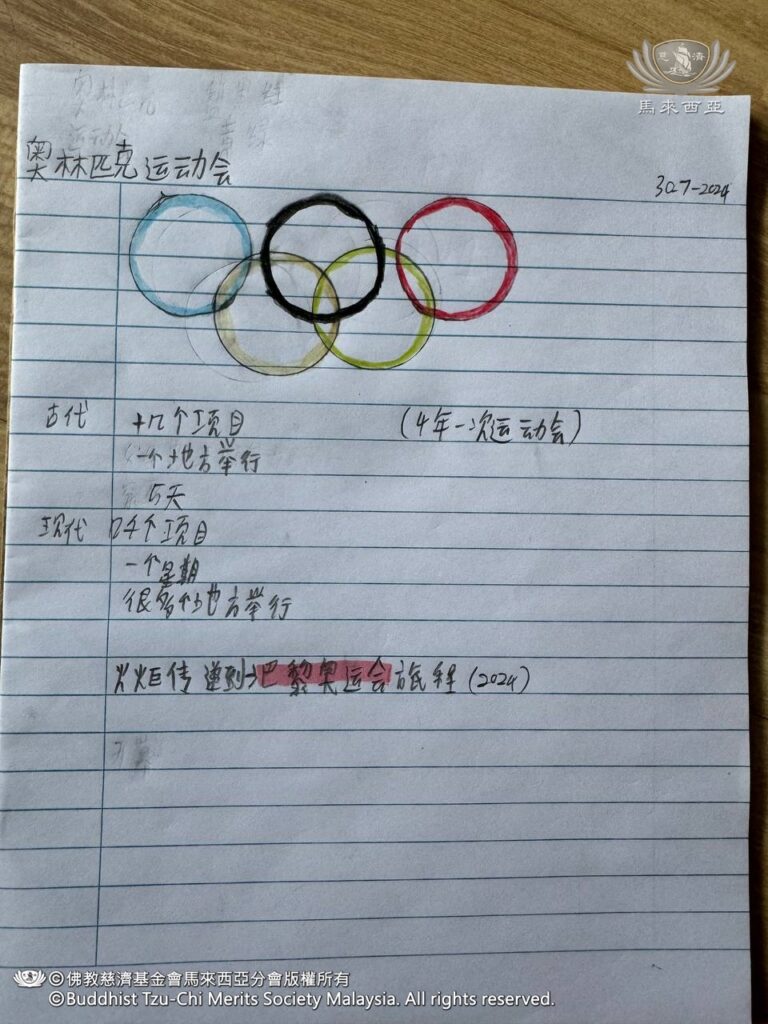 馬來西亞
奥林匹克运动会
30.7-2024
古代 十几个项目 (4年一次运动会)
一个地方举行
5天
现代 几千个项目
一个星期
很多个地方举行
火炬传递到→巴黎奥运会旅程(2024)
©佛教慈濟基金會馬來西亞分會版權所有
©Buddhist Tzu-Chi Merits Society Malaysia. All rights reserved.